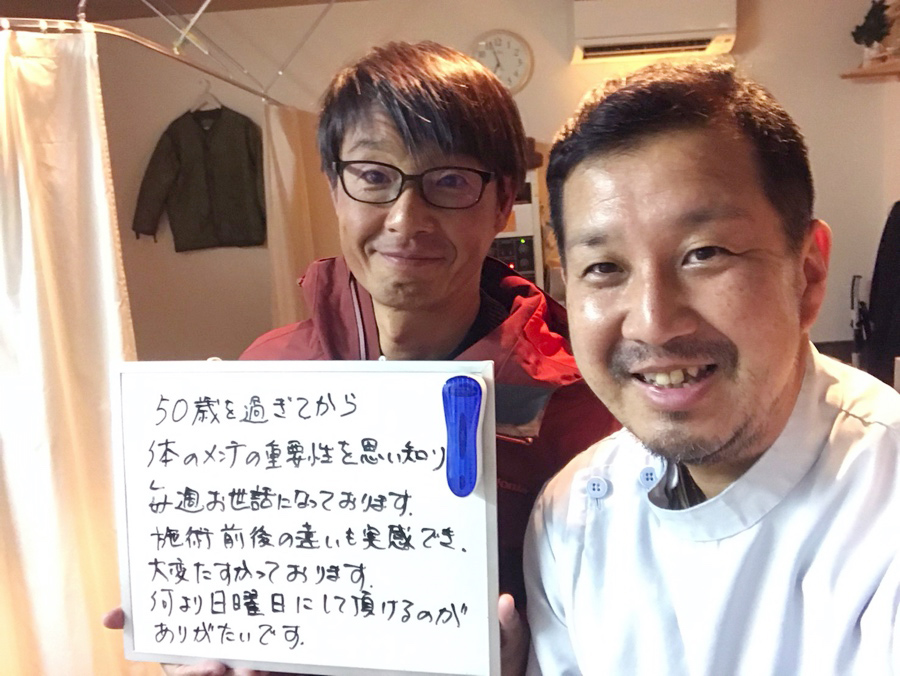 50歳を過ぎてから
体のメンテの重要性を思い知り
毎週お世話になっております。
施術前後の違いも実感でき、
大変たすかっております。
何より日曜日にして頂けるのが
ありがたいです。